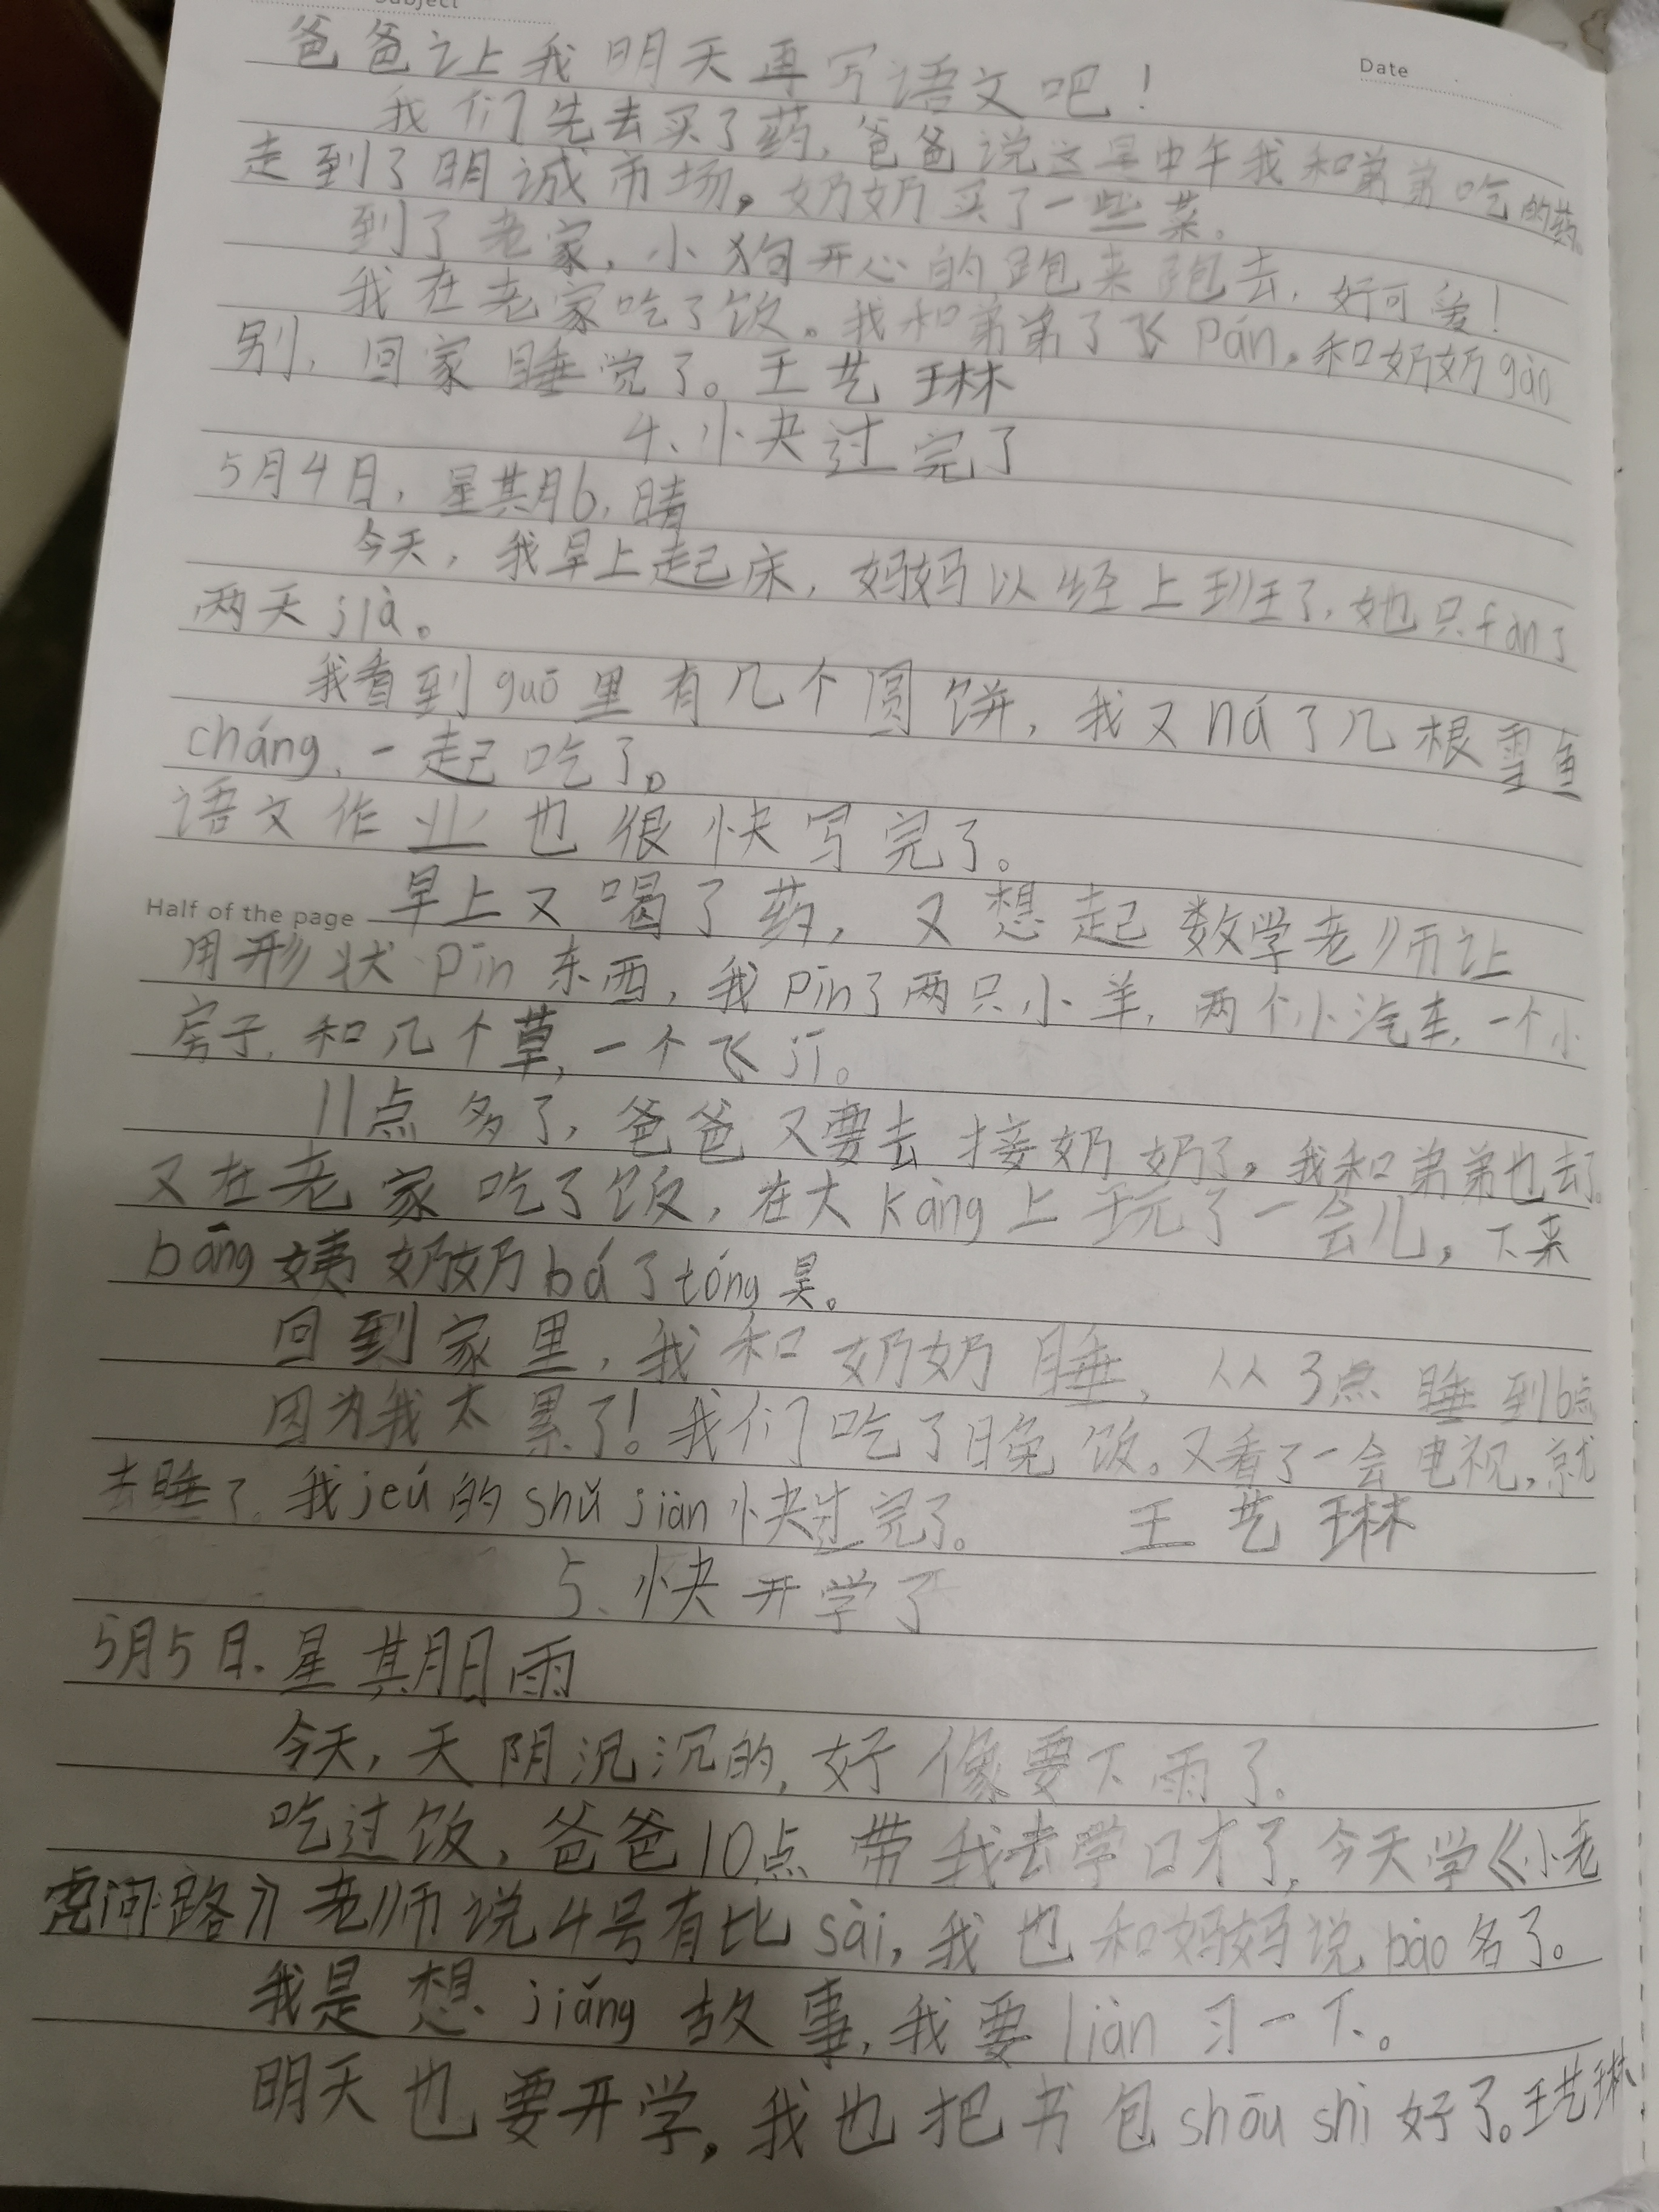 Subject
Date
爸爸让我明天再写语文吧！
我们先去买了药，爸爸说这是中午我和弟弟吃的药。
走到了明诚市场。奶奶买了一些菜。
到了老家，小狗开心的跑来跑去，好可爱！
我在老家吃了饭。我和弟弟了飞pán。和奶奶gào
别，回家睡觉了。王艺琳
4、小夬过完了
5月4日，星期6，晴
今天，我早上起床，妈妈以经上班了，她只fàn了
两天jià。
我看到guō里有几个圆饼，我又ná了几根雪鱼
cháng，一起吃了。
语文作业也很快写完了。
早上又喝了药，又想起数学老师让
Half of the page
用形状pīn东西，我pīn了两只小羊，两个小汽车，一个小
房子，和几个草，一个飞jī。
11点多了，爸爸又要去接奶奶了。我和弟弟也去了。
又在老家吃了饭，在大kàng上玩了一会儿，下来
bāng姨奶奶bá了tóng昊。
回到家里，我和奶奶睡，从3点睡到6点
因为我太累了！我们吃了晚饭。又看了一会电视，就
去睡了。我jeú的shǔ jiàn快过完了。 王艺琳
5、快开学了
5月5日、星期日雨
今天，天阴沉沉的，好像要下雨了。
吃过饭，爸爸10点带我去学口才了，今天学《小老
虎问路》老师说4号有比sài，我也和妈妈说bào名了。
我是想jiǎng故事，我要liàn习一下。
明天也要开学，我也把书包shōu shi好了。王艺琳